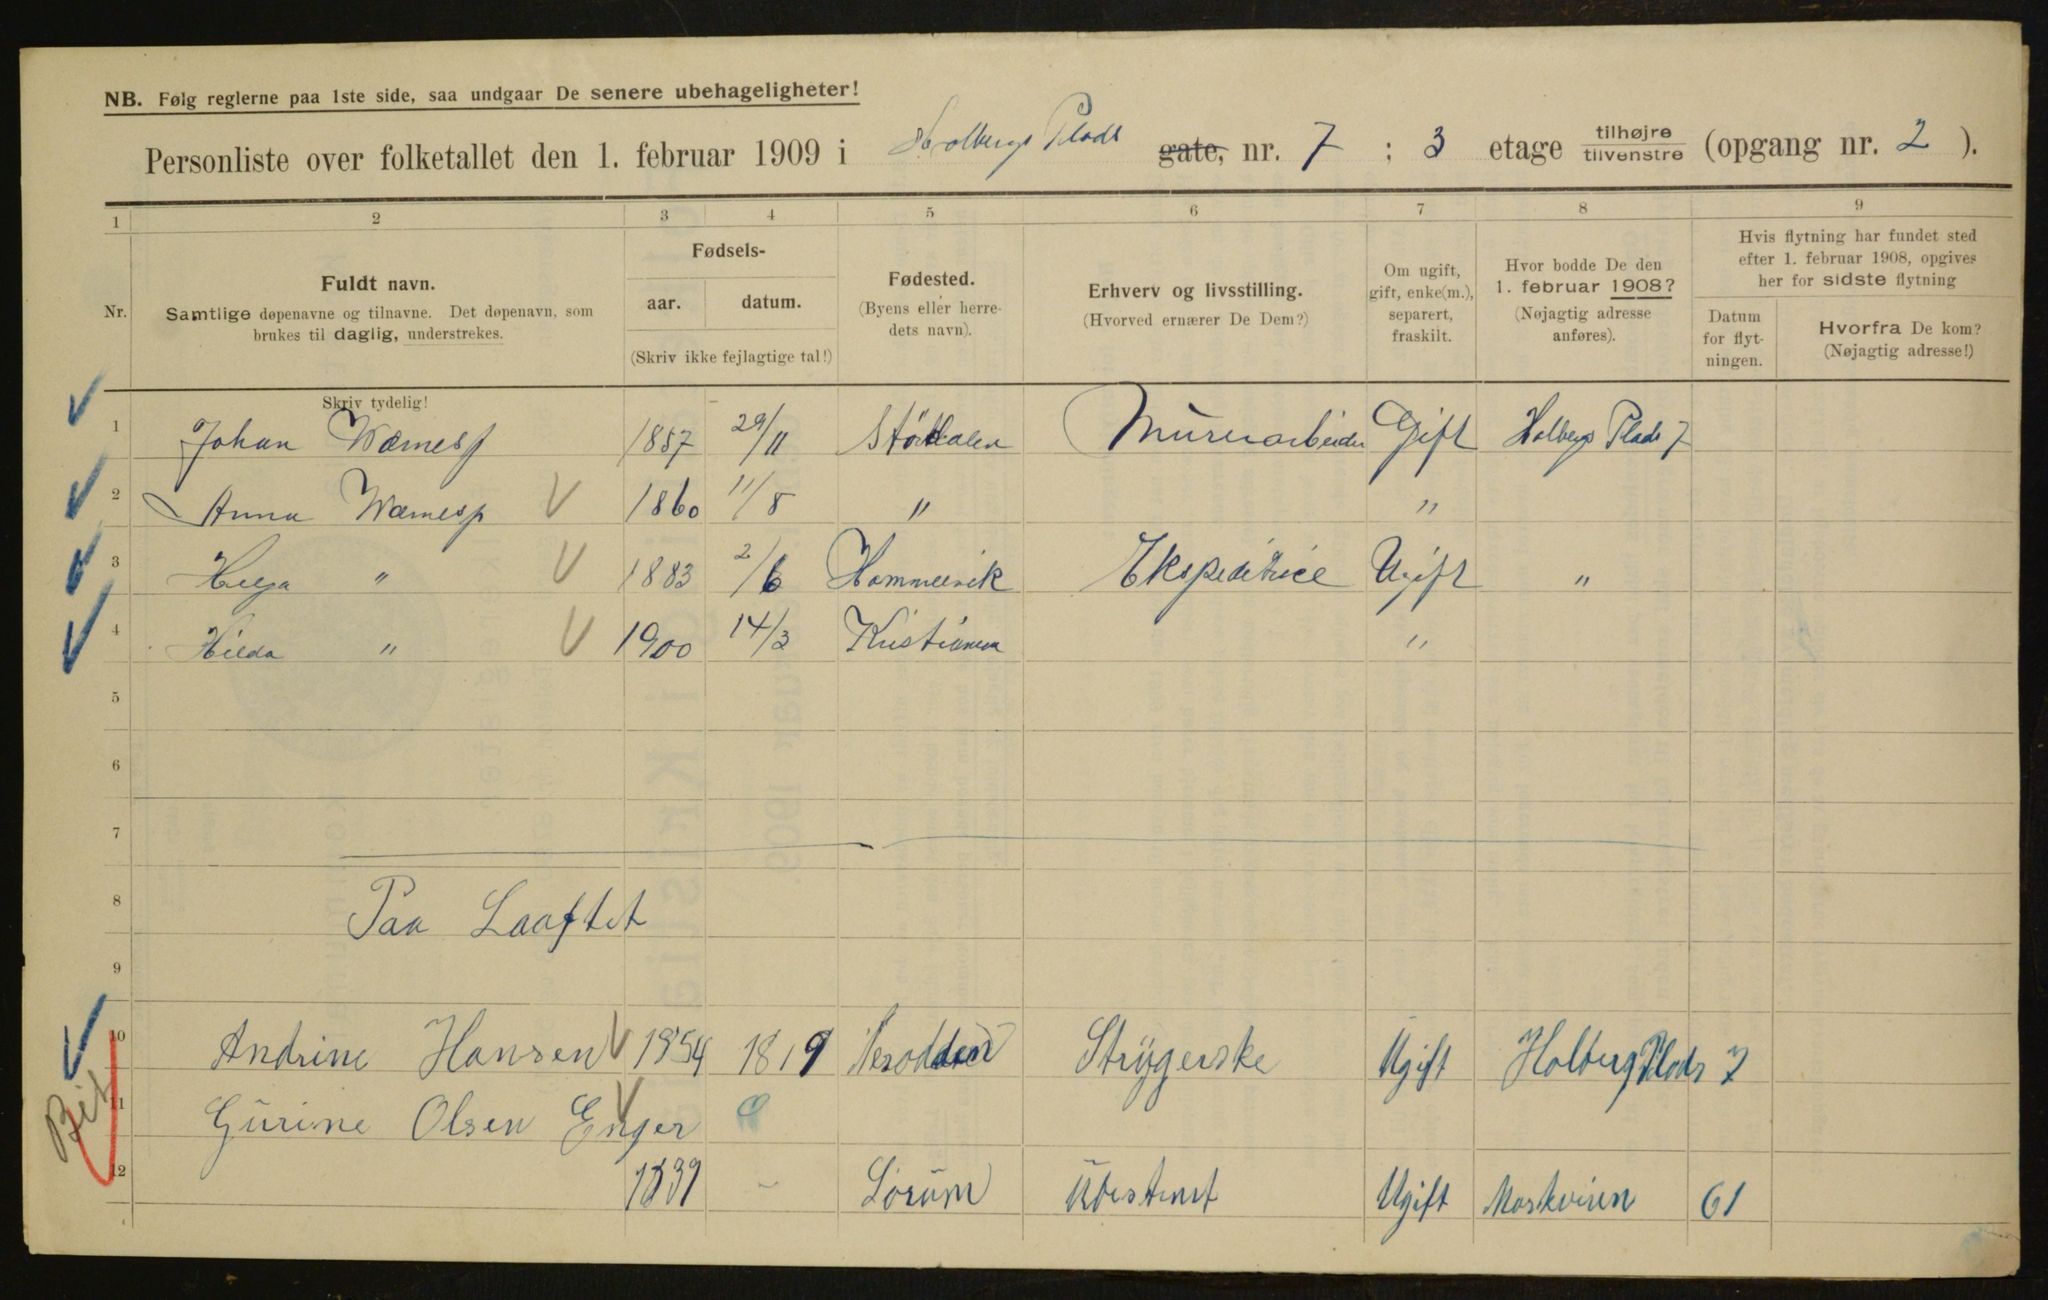 NB. Følg reglerne paa 1ste side, saa undgaar De senere ubehageligheter!
Personliste over folketallet den 1. februar 1909 i Holbergs Plads gate, nr. 7 ; 3 etage tilhøjre tilvenstre (opgang nr. 2 ).
1 2 3 4 5 6 7 8 9
Nr.
Fuldt navn.
Samtlige døpenavne og tilnavne. Det døpenavn, som
brukes til daglig, understrekes.
Fødsels-
aar. datum.
(Skriv ikke fejlagtige tal!)
Fødested.
(Byens eller herre-
dets navn).
Erhverv og livsstilling.
(Hvorved ernærer De Dem?)
Om ugift,
gift, enke(m.),
separert,
fraskilt.
Hvor bodde De den
1. februar 1908?
(Nøjagtig adresse
anføres).
Hvis flytning har fundet sted
efter 1. februar 1908, opgives
her for sidste flytning
Datum
for flyt-
ningen.
Hvorfra De kom?
(Nøjagtig adresse!)
Skriv tydelig!
1 Johan Wærnesp 1857 29/11 Størdalen Murerarbeider Gift Holbergs Plads 7
2 Anna Wærnesp 1860 11/8 " "
3 Helga " 1883 2/6 Hommelvik Ekspeditrice Ugift "
4 Hilda " 1900 14/3 Kristiania "
5
6
7
8 Paa Laaftet
9
10 Andrine Hansen 1854 18/9 Strÿgerske Ugift Holberg Plads 7
11 Gurine Olsen Enger
12 1839 - Sørum Ubestemt Ugift 61